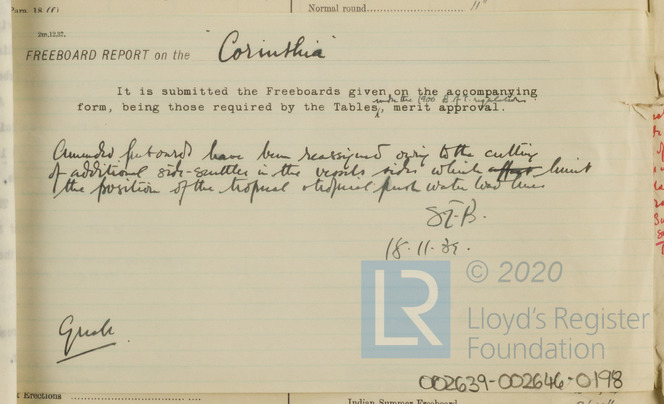 Para. 18 (f)
Normal round.................... 11"
2m.12.37.
FREEBOARD REPORT on the "Corinthia"
It is submitted the Freeboards given on the accompanying
under the 1930 B.O.T. regulations
form, being those required by the Tables, merit approval.
Amended freeboards have been reassigned owing to the cutting
of additional side-scuttles in the vessels sides which affect limit
the position of the tropical & tropical fresh water load lines
18.11.39.
© 2020
LR
Lloyd's Register
Foundation
002639-002646-0198
Erections
Indian Summer Freeboard